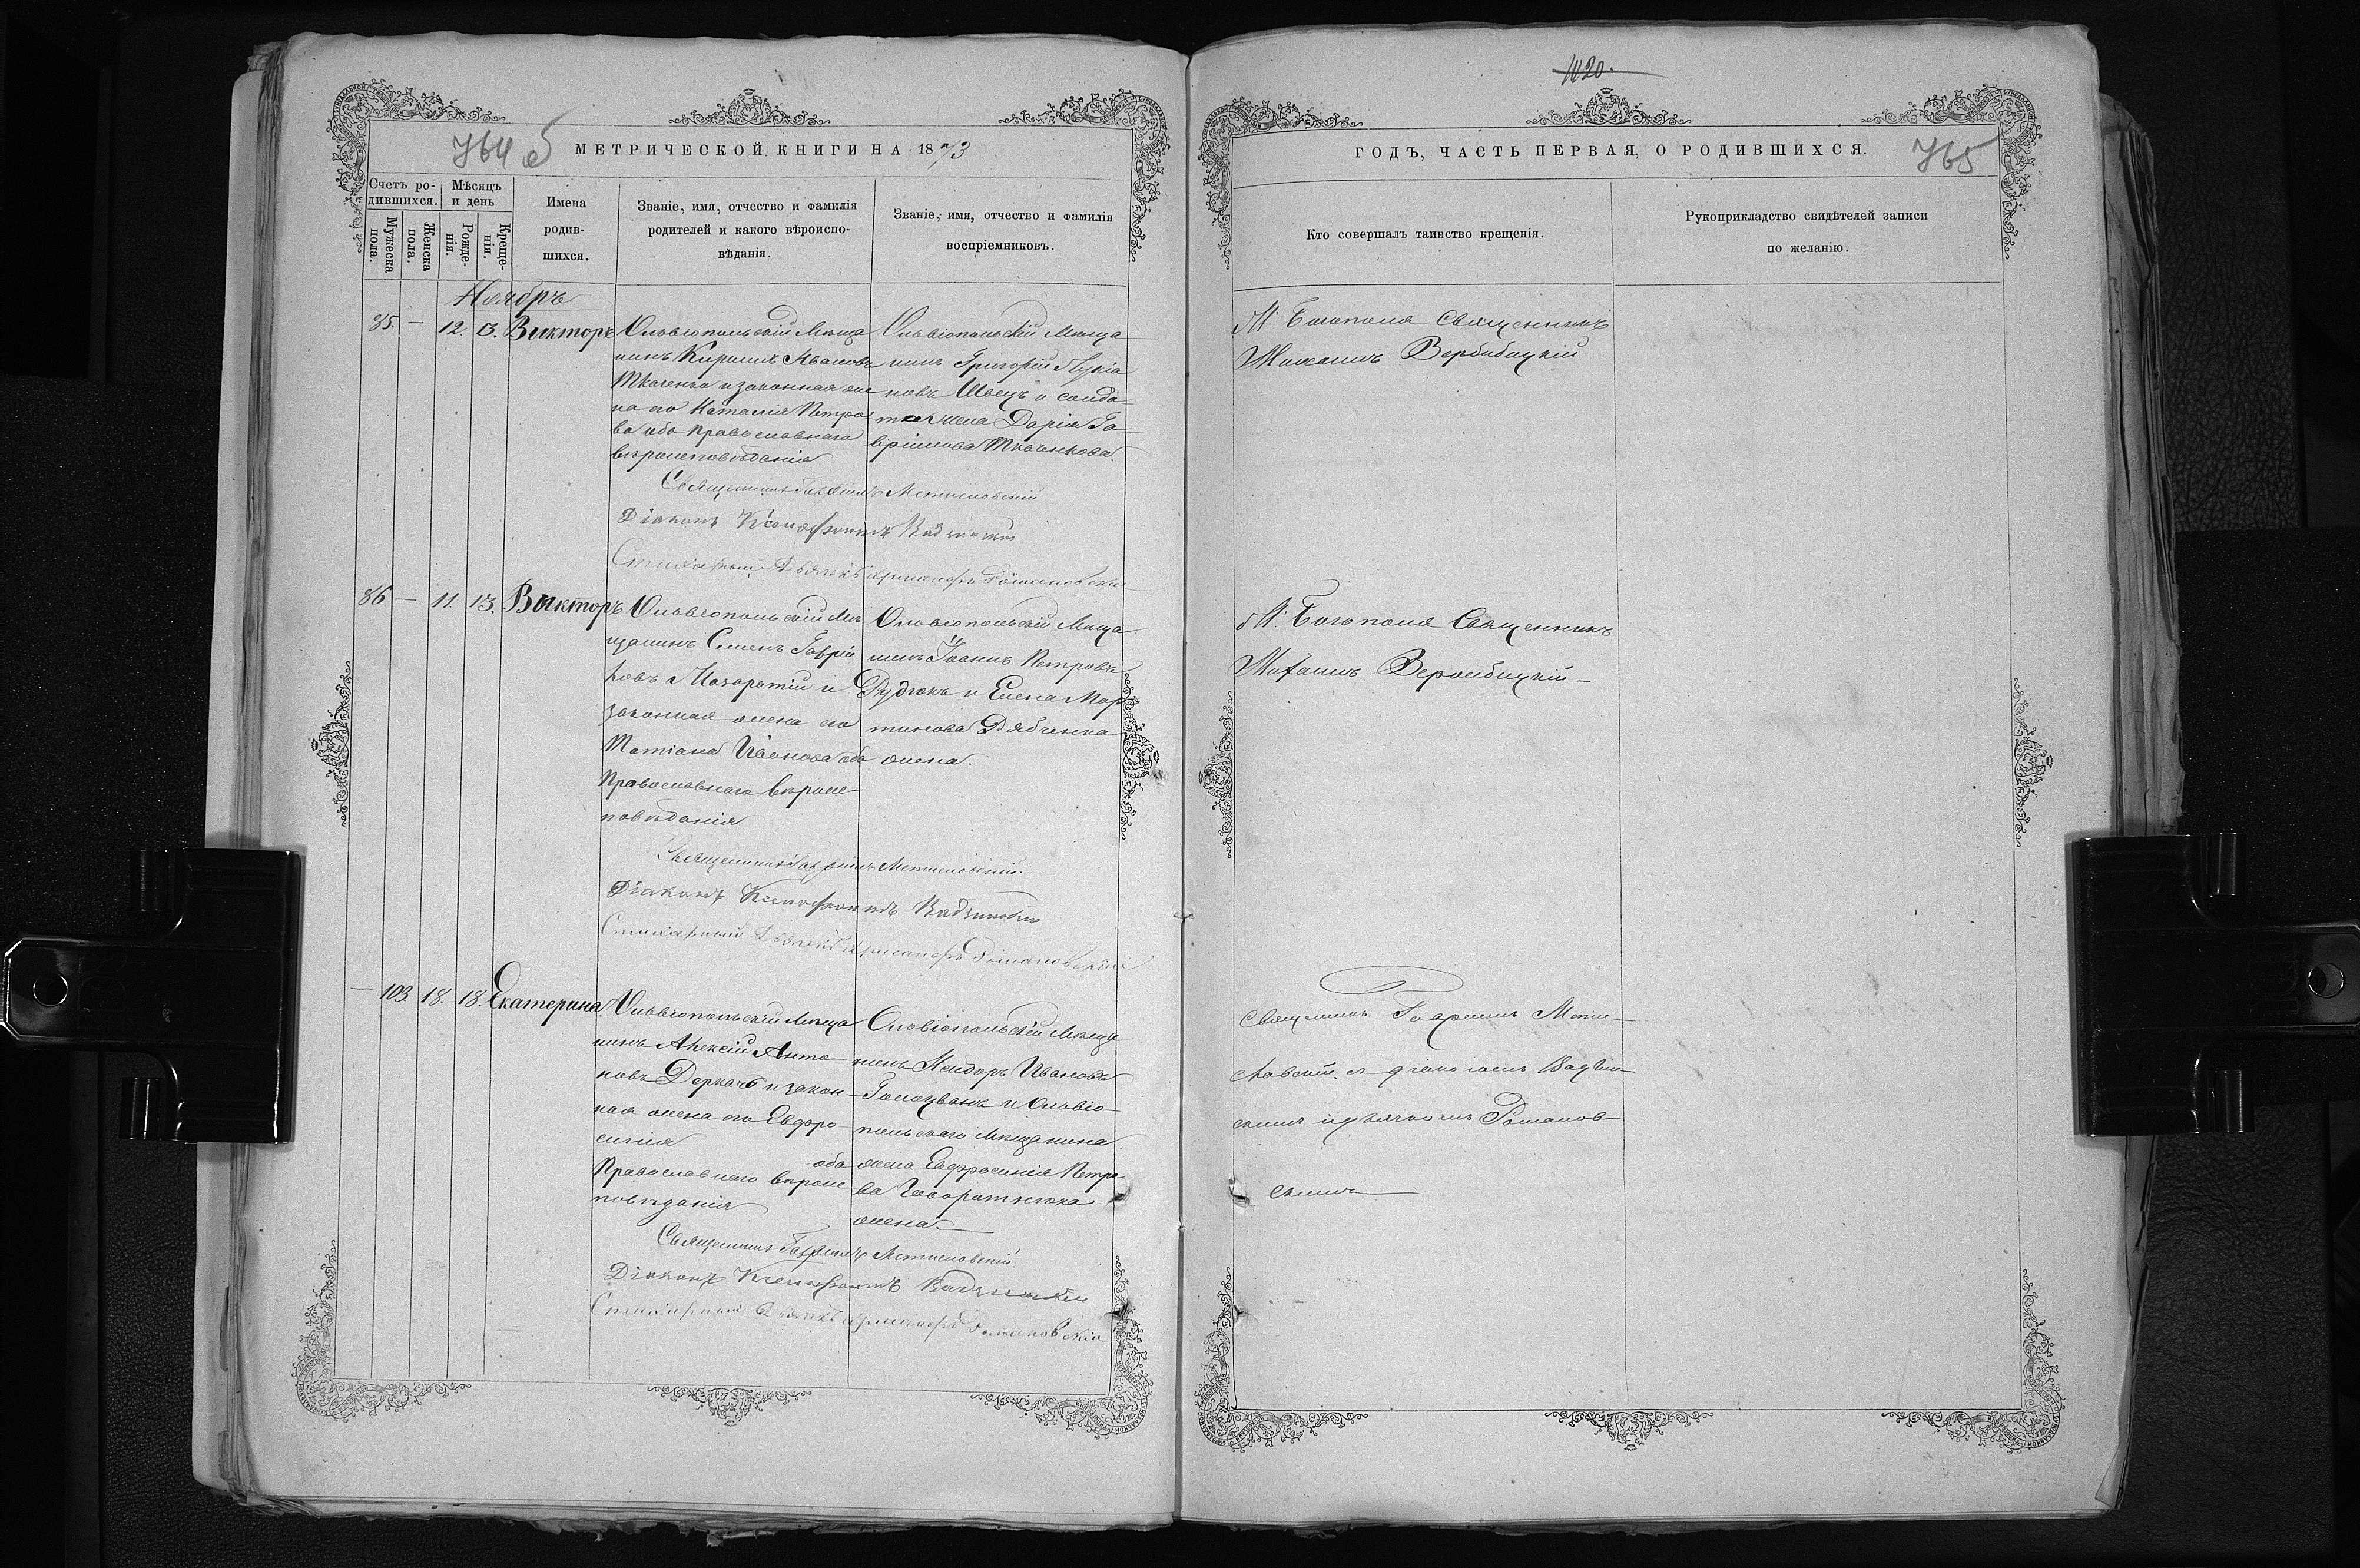 764 б
МЕТРИЧЕСКОЙ КНИГИ НА 1873
Счетъ ро-
дившихся.
Мѣсяцъ
и день
Мужеска
пола.
Женска
пола.
Рожде-
нія.
Креще-
нія.
Имена
родив-
шихся.
Званіе, имя, отчество и фамилія
родителей и какого вѣроиспо-
вѣданія.
Званіе, имя, отчество и фамилія
воспріемниковъ.
Ноябръ
85. — 12. 13. Викторъ
Ольвіопольскій Мѣща
нинъ Кирилъ Ивановъ
Ткаченко и законная же
на его Наталія Петро
ва оба православнаго
вѣроисповѣданія
Ольвіопольскій Мѣща
нинъ Григорій Лукіа
новъ Швецъ и солда
тка жена Дарія Га
вріилова Ткачикова.
Священникъ Гавріилъ Метиславскій
Діаконъ Ксенофонтъ Вадзинскій
Стихарный Дьячекъ Романовскій
86 — 11. 13. Викторъ
Ольвіопольскій Мѣ
щанинъ Сименъ Гаврій
ловъ Назаратій и
законная жена его
Татіана Иванова оба
Православнаго вѣроис
повѣданія
Ольвіопольскій Мѣща
нинъ Іоаннъ Петровъ
Дудюкъ и Елена Мар
тинова Рябченка
жена.
Священникъ Гавріилъ Метиславскій.
Діаконъ Ксенофонтъ Вадзинскій
Стихарный Дьячекъ Романовскій
— 103. 18. 18. Екатерина
Ольвіопольскій Мѣща
нинъ Алексій Анто
новъ Деркачъ и закон
ная жена его Евфро
синія
оба
Православнаго вѣроис
повѣданія
Ольвіопольскій Мѣща
нинъ Исидоръ Ивановъ
Голохванъ и Ольвіо-
польскаго Мѣщанина
жена Евфросинія Петро
ва
жена.
Священникъ Гавріилъ Метиславскій.
Діаконъ Ксенофонтъ Вадзинскій
Стихарный Дьячекъ Романовскій
1020.
ГОДЪ, ЧАСТЬ ПЕРВАЯ, О РОДИВШИХСЯ.
765
Кто совершалъ таинство крещенія.
Рукоприкладство свидѣтелей записи
по желанію.
М. Богополя Священникъ
Михаилъ Вербибицкій
М. Богополя Священникъ
Михаилъ Вербибицкій —
Священникъ Гавріилъ Мети-
славскій съ діакономъ Вадзин-
скимъ и дьячкомъ Романов-
скимъ